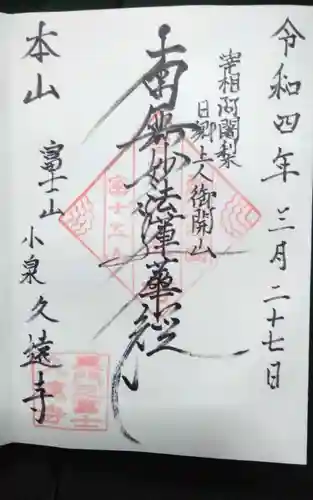 令和四年三月二十七日
宰相阿闍梨
日郷上人御開山
南無妙法蓮華経
本山
富士山小泉久遠寺